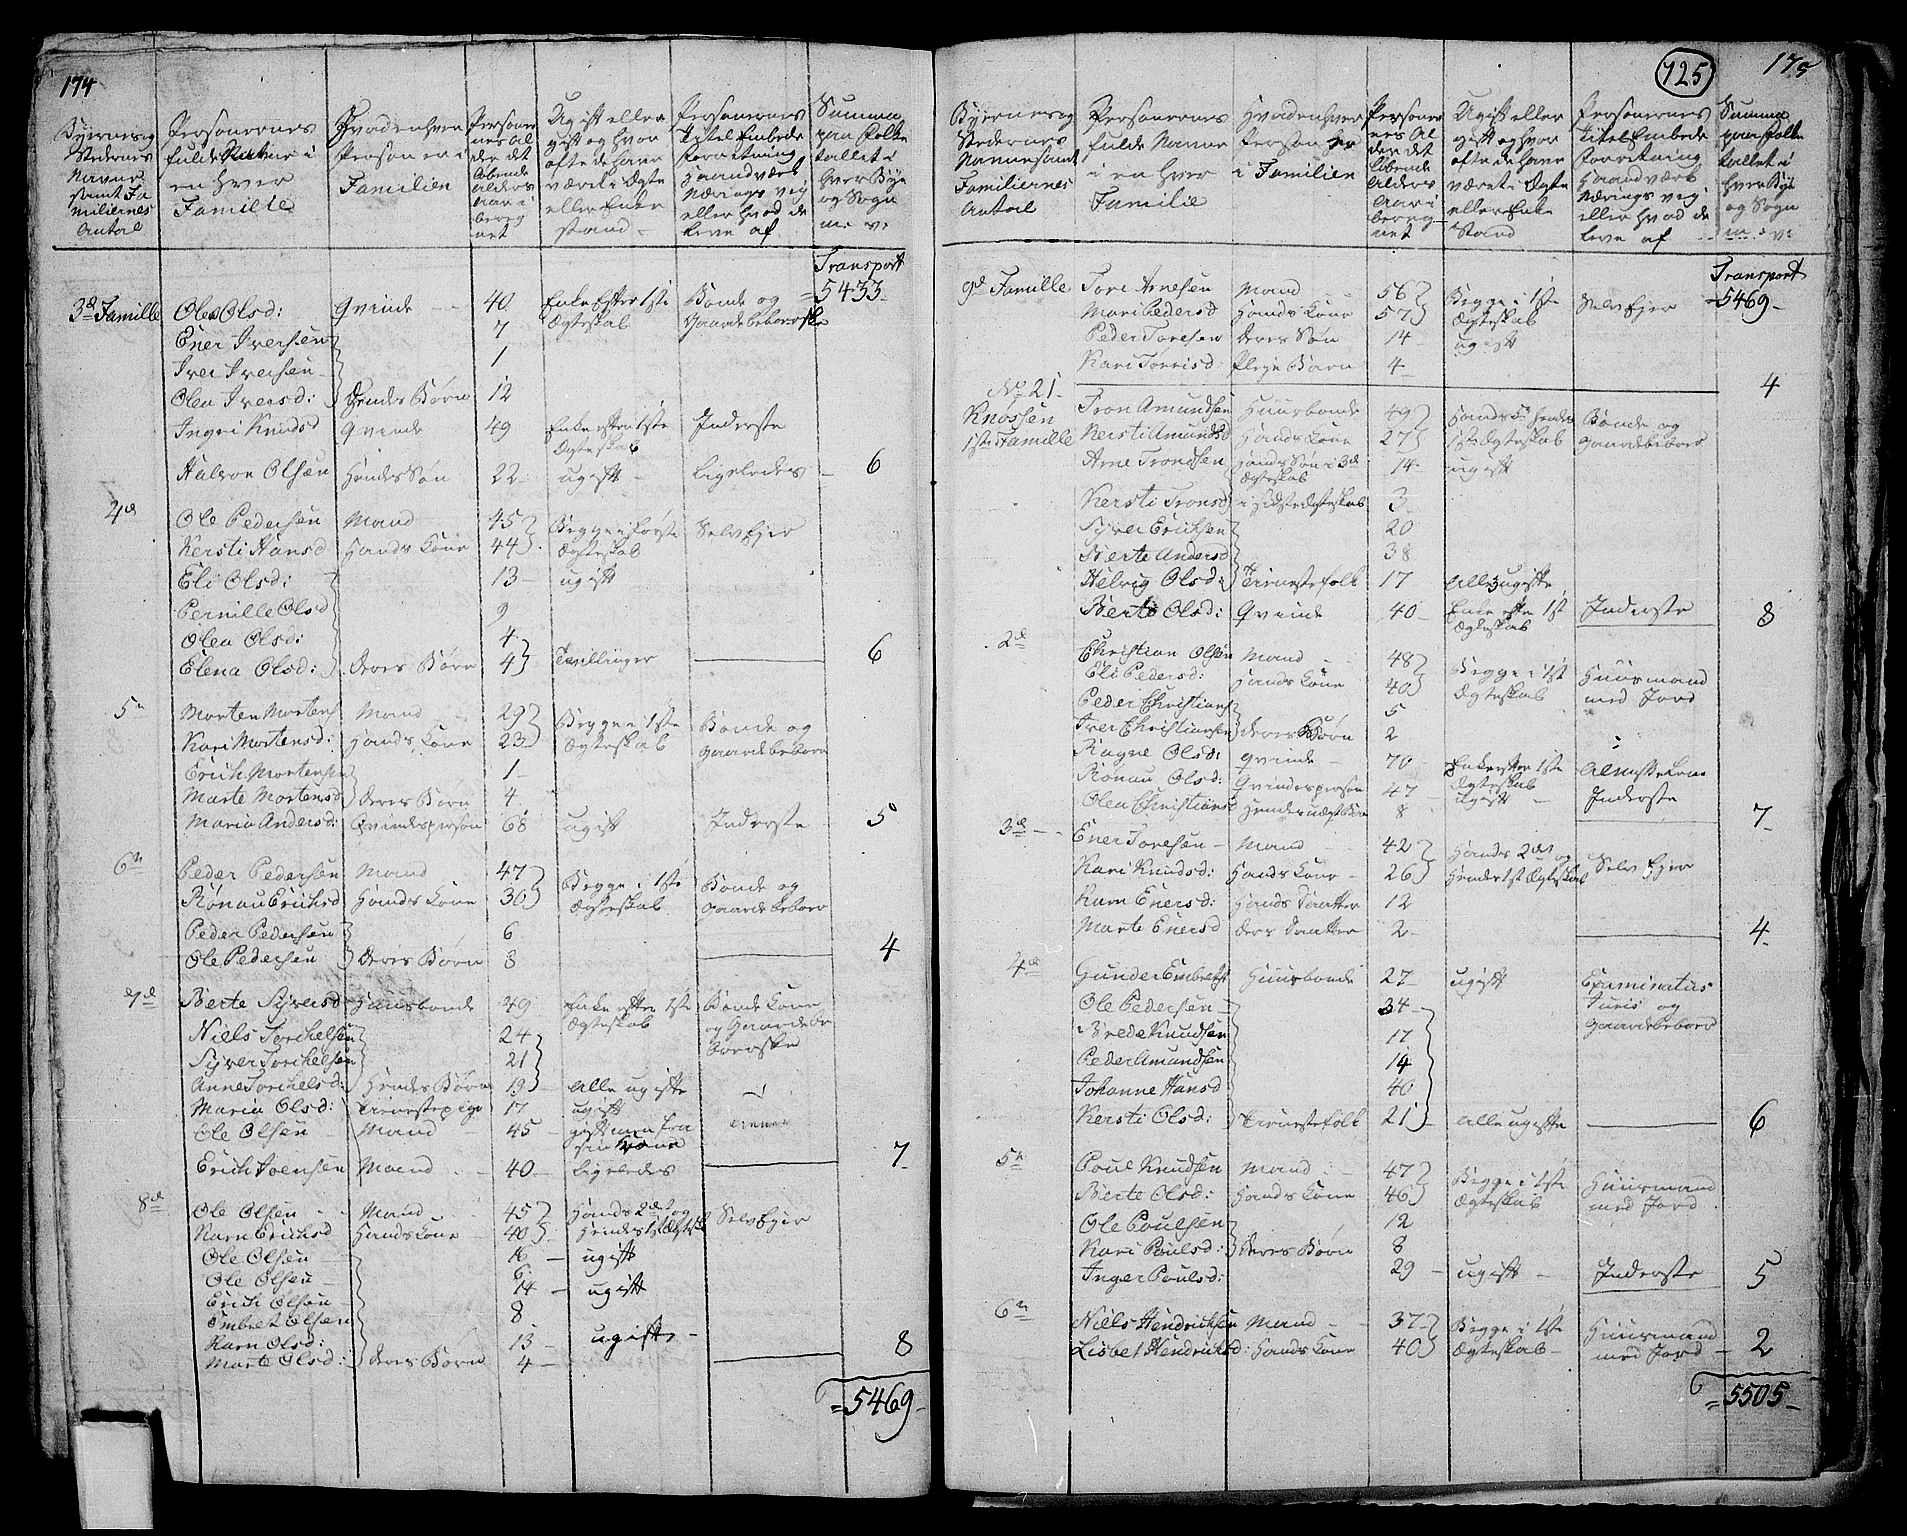 174
Byernes og Stedernes Navne samt Familiernes Antal
Personernes fulde Navne i en hver Familie
Hvad en hver Person er i Familien
Personernes Alder det løbende Alders Aar iberegnet
Ugift eller gift og hvor ofte de have været i Ægte eller Enke stand
Personernes Titel Embede Forretning Haandværk Nærings vej eller hvad de leve af
Summa paa Folke tallet i hver Bye og Sogn m: v:
Transport
=5433-
3d Familie Olea Olsd: Qvinde 40 Enke efter 1ste Ægteskab Bonde og Gaardbeboerske
Ener Iversen 7
Iver Iversen 1
Olea Iversd: Hendes Børn 12
Ingri Knudsd Qvinde 49 Enke efter 1ste Ægteskab Inderste
Halvor Olsen Hendes Søn 22 ugift ligeledes 6
4de Ole Pedersen Mand 45 Begge i første Ægteskab Selv Ejer
Kersti Hansd Hands Kone 44
Eli Olsd: 13 ugift
Pernille Olsd 9
Olea Olsd: 4
Elena Olsd: deres Børn 4 Tvillinger 6
5te Morten Mortens Mand 29 Begge i 1ste Ægteskab Bonde og Gaardbeboer
Kari Mortensd: Hands Kone 23
Erich Mortensen 1
Marte Mortensd deres Børn 4
Maria Andersd: Qvindesperson 68 ugift Inderste 5
6te Peder Pedersen Mand 47 Begge i 1ste Ægteskab Bonde og Gaardbeboer
Rønau Erichsd Hands Kone 36
Peder Pedersen 6
Ole Pedersen Deres Børn 3 4
7de Berte Syversd Huusbonde 49 Enke efter 1ste Ægteskab Bonde Kone og Gaardbeboerske
Niels Torchelsen 24
Syver Torchelsen 21
Anne Torchelsd: Hendes Børn 19 alle ugifte
Maria Olsd: Tienestepige 17 ugift
Ole Olsen Mand 45 gift men fra sin Kone
Erich Joensen Mand 40 ligeledes 7
8de Ole Olsen Mand 45 Hands 2det og Hendes 1st Ægtesk Selv Ejer
Karn Erichsd Hands Kone 40
Ole Olsen 16 ugift
Ole Olsen 6
Erich Olsen 14 ugift
Embret Olsen 8
Karn Olsd: 13 ugift
Marte Olsd: deres Børn 4 8
=5469-
725
175
Byernes og Stedernes Navne samt Familiernes Antal
Personernes fulde Navne i en hver Familie
Hvad en hver Person er i Familien
Personernes Alder det løbende Alders Aar iberegnet
Ugift eller gift og hvor ofte de have været i Ægte eller Enke Stand
Personernes Titel Embede Forretning Haandværk Nærings vej eller hvad de leve af
Summa paa Folke tallet i hver Bye og Sogn m: v:
Transport
=5469-
9de Familie Tore Arnesen Mand 56 Begge i 1ste Ægteskab Selv Ejer
Mari Pedersd Hands Kone 57
Peder Toresen deres Søn 14 ugift
Kari Torrisd Pleje Barn 4 4
No 21 Knossen 1ste Familie Tron Amundsen Huusbonde 49 Hands 3 Hendes 1ste Ægteskab Bonde og Gaardbeboer
Kersti Amundsd Hands Kone 27
Arne Trondsen Hands Søn i 3de Ægteskab 14 ugift
Kersti Tronsd i sidste Ægteskab 3
Syver Erichsen 20
Berte Andersd 38
Helvig Olsd: Tienestefolk 17 Alle 3 ugifte
Berte Olsd: Qvinde 40 Enke efter 1st Ægteskab Inderste 8
2de Christian Olsen Mand 48 Begge i 1st Ægteskab Huusmand med Jord
Eli Pedersd: Hands Kone 40
Peder Christians 5
Iver Christiansen deres Børn 2
Ragne Olsd: Qvinde 70 Enke efter 1ste Ægteskab Almisselem
Rønau Olsd: Qvindesperson 47 Ugift Inderste
Olea Christiansd Hendes uægte Børn 8 7
3de Ener Toresen Mand 42 Hands 2det og Hendes 1st Ægteskab Selv Ejer
Kari Knudsd: Hands Kone 26
Karn Enersd: Hands Daatter 12
Marte Enersd deres Daatter 2 4
4de Gunder Embretsen Huusbonde 27 ugift Examinatus Juris og Gaardbeboer
Ole Pedersen 34
Brede Knudsen 17
Peder Amundsen 14
Johanne Hansd 40
Kersti Olsd: Tienestefolk 21 Alle ugifte 6
5te Poul Knudsen Mand 47 Begge i 1ste Ægteskab Huusmand med Jord
Berte Olsd: Hands Kone 46
Ole Poulsen 12
Kari Poulsd: deres Børn 8
Inger Poulsd: 29 ugift Inderste 5
6te Niels Hendrichsen Mand 37 Begge i 1ste Ægteskab Huusmand med Jord
Lisbet Hendrichsd: Hands Kone 40 2
=5505-